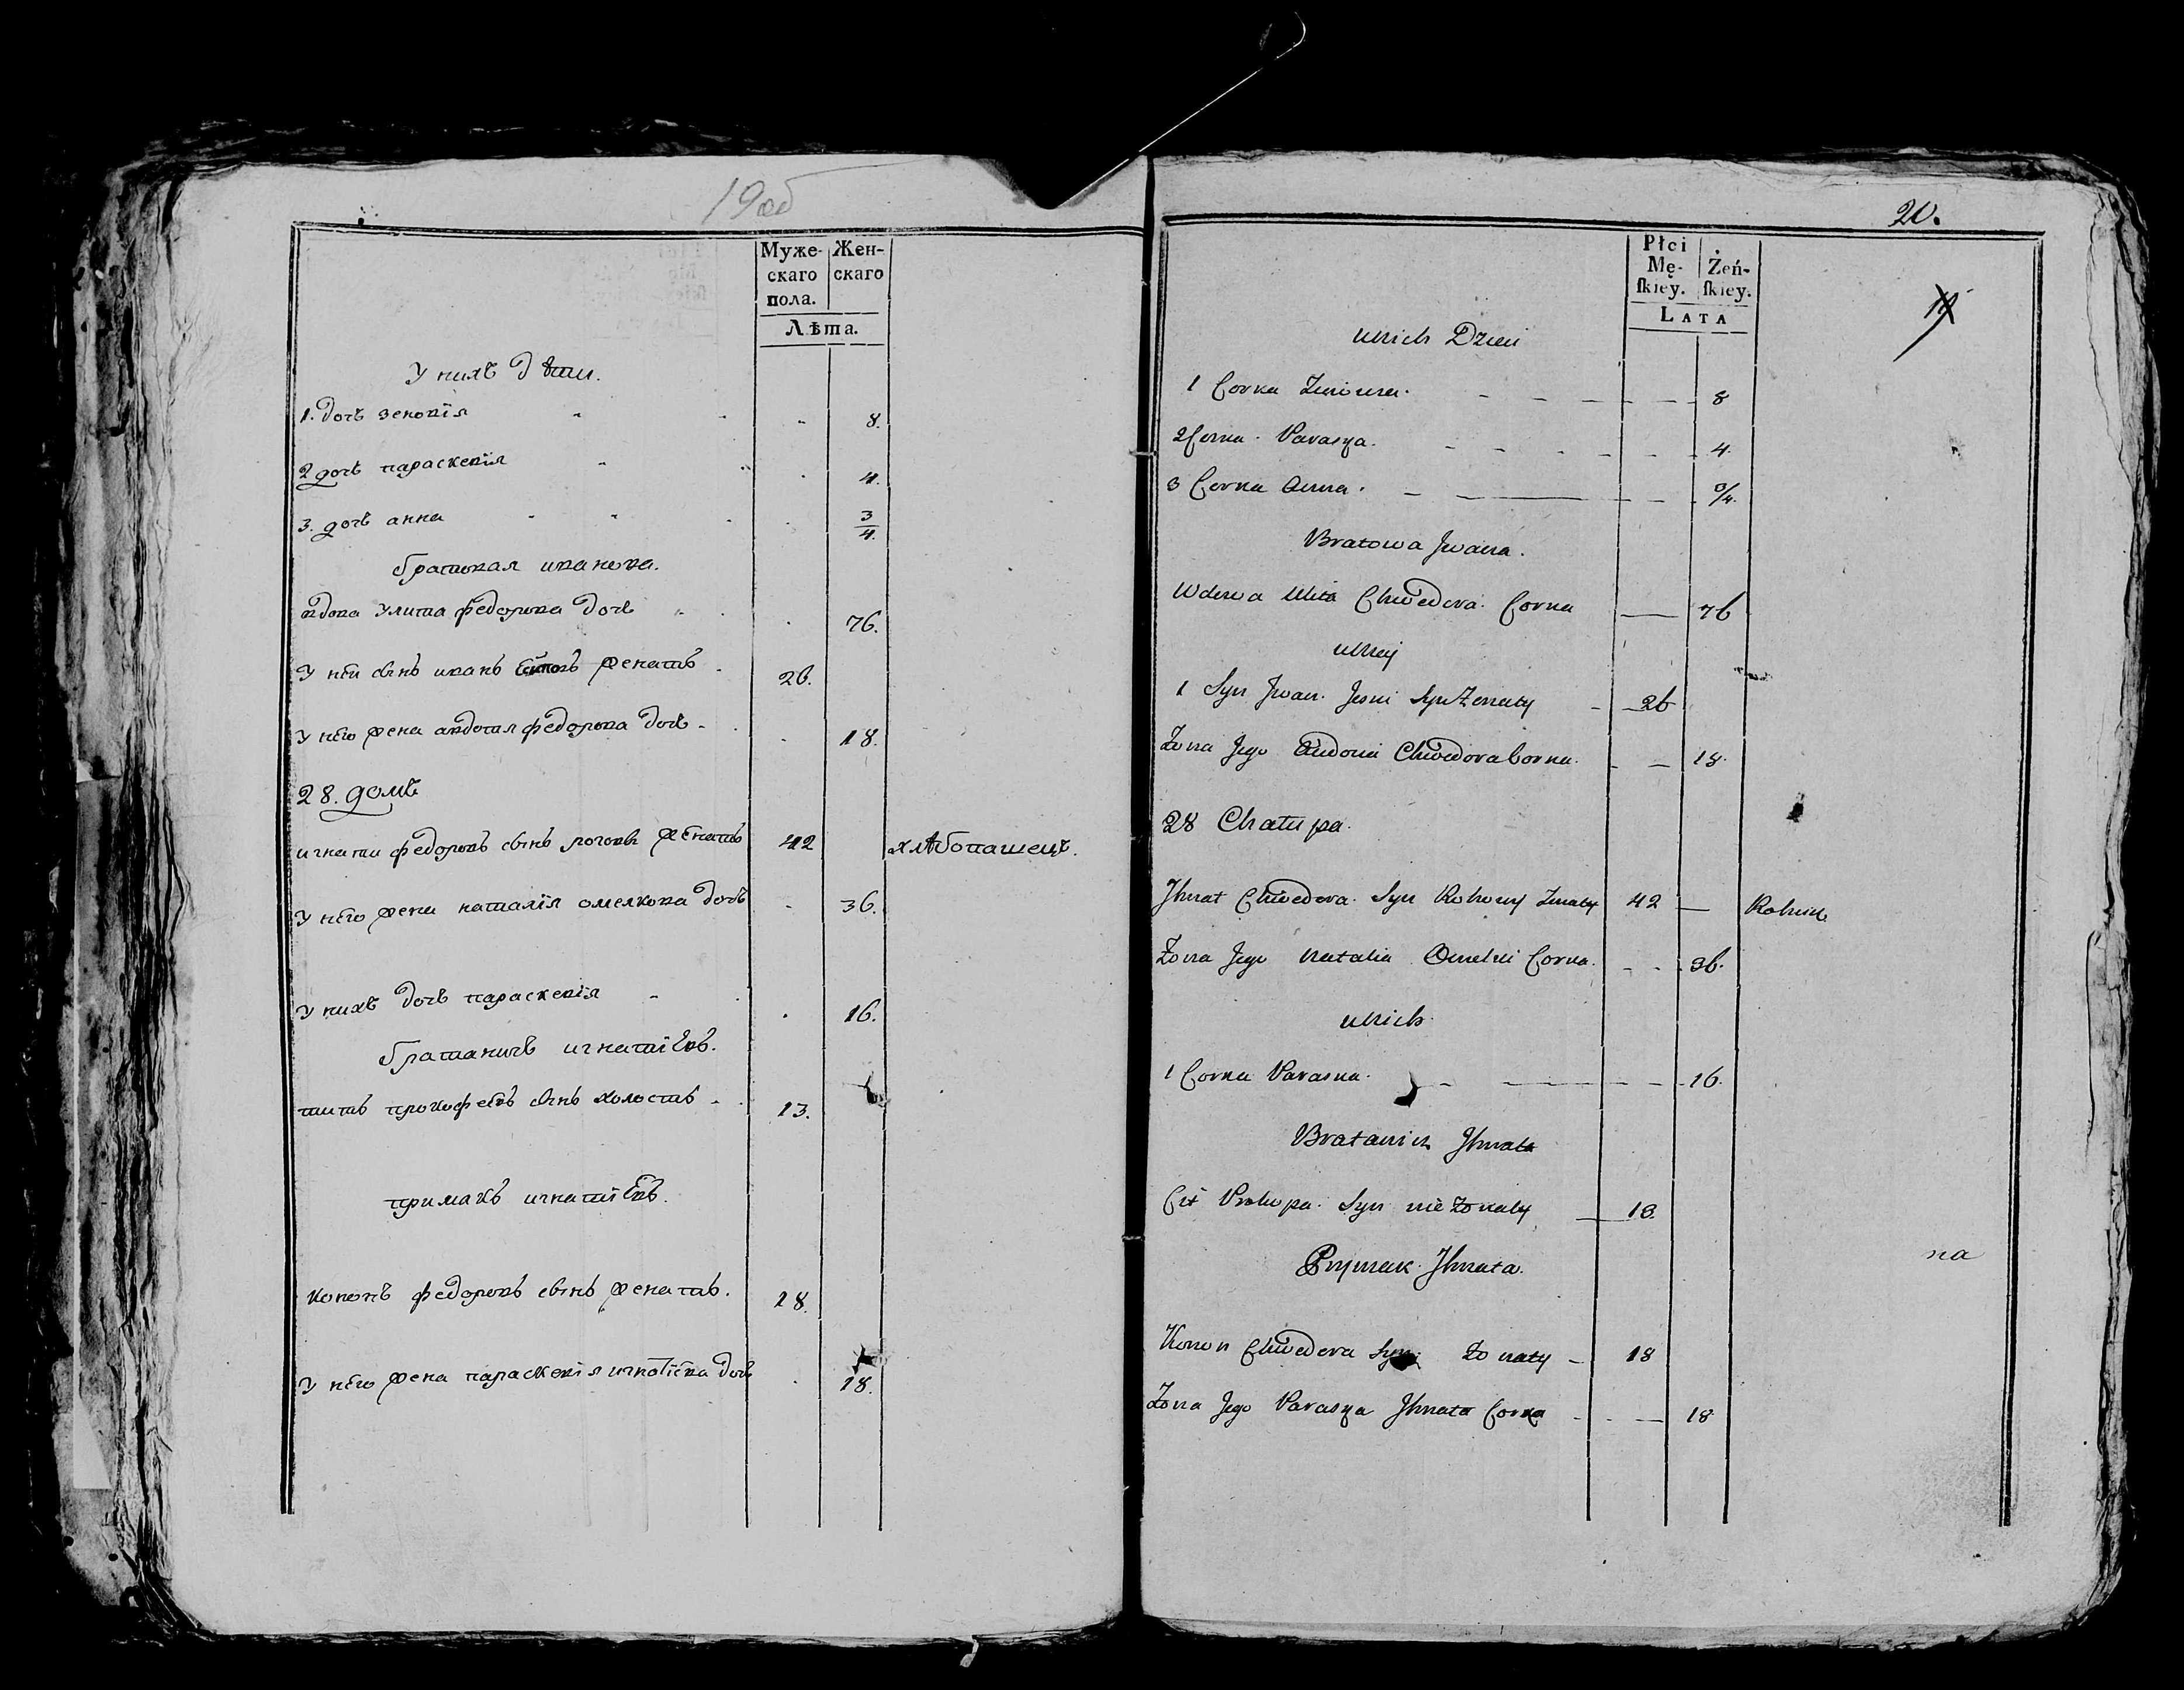 19об
Муже- Жен-
скаго скаго
пола.
Лѣта.
У нихъ дѣти.
1. дочь зеновія 8.
2 дочь параскевія 4.
3. дочь анна 3/4.
братовая иванова.
вдова улита федорова дочь 76.
У неи сынъ иванъ женатъ 26.
У него жена авдотия федорова дочь 18.
28. домъ
игнати федоровъ сынъ роговы женатъ 42 хлѣбопашецъ.
У него жена наталія омелкова дочь 36.
У нихъ дочь параскевія 16.
братаничъ игнатіевъ.
титъ прокофевъ сынъ холостъ 13.
примакъ игнатіевъ.
кононъ федоровъ сынъ женатъ. 18.
У него жена параскевія игнатіева дочь 18.
20.
Płci
Mę- Żeń-
ſkiey. ſkiey.
LATA
U Nich Dzieci
1 Corka Zinowia 8
2 Corka Paraska. 4.
3 Corka Anna. 3/4.
Bratowa Jwana.
Wdowa Ulita Chwedora Corka 76
U Niey
1 Syn Jwan Syn Żonaty 26
Żona Jego Audocia Chwedora Corka. 18.
28 Chałupa.
Jhnat Chwedora Syn Rohowy Żonaty 42 Rolnik
Żona Jego Natalia Omelki Corka. 36.
U Nich
1 Corka Paraska. 16.
Bratanicz Jhnata
Cit Prokopa Syn nie żonaty 13.
Pryimak Jhnata.
na
Konon Chwedora Syn żonaty 18
Żona Jego Paraska Jhnata Corka 18